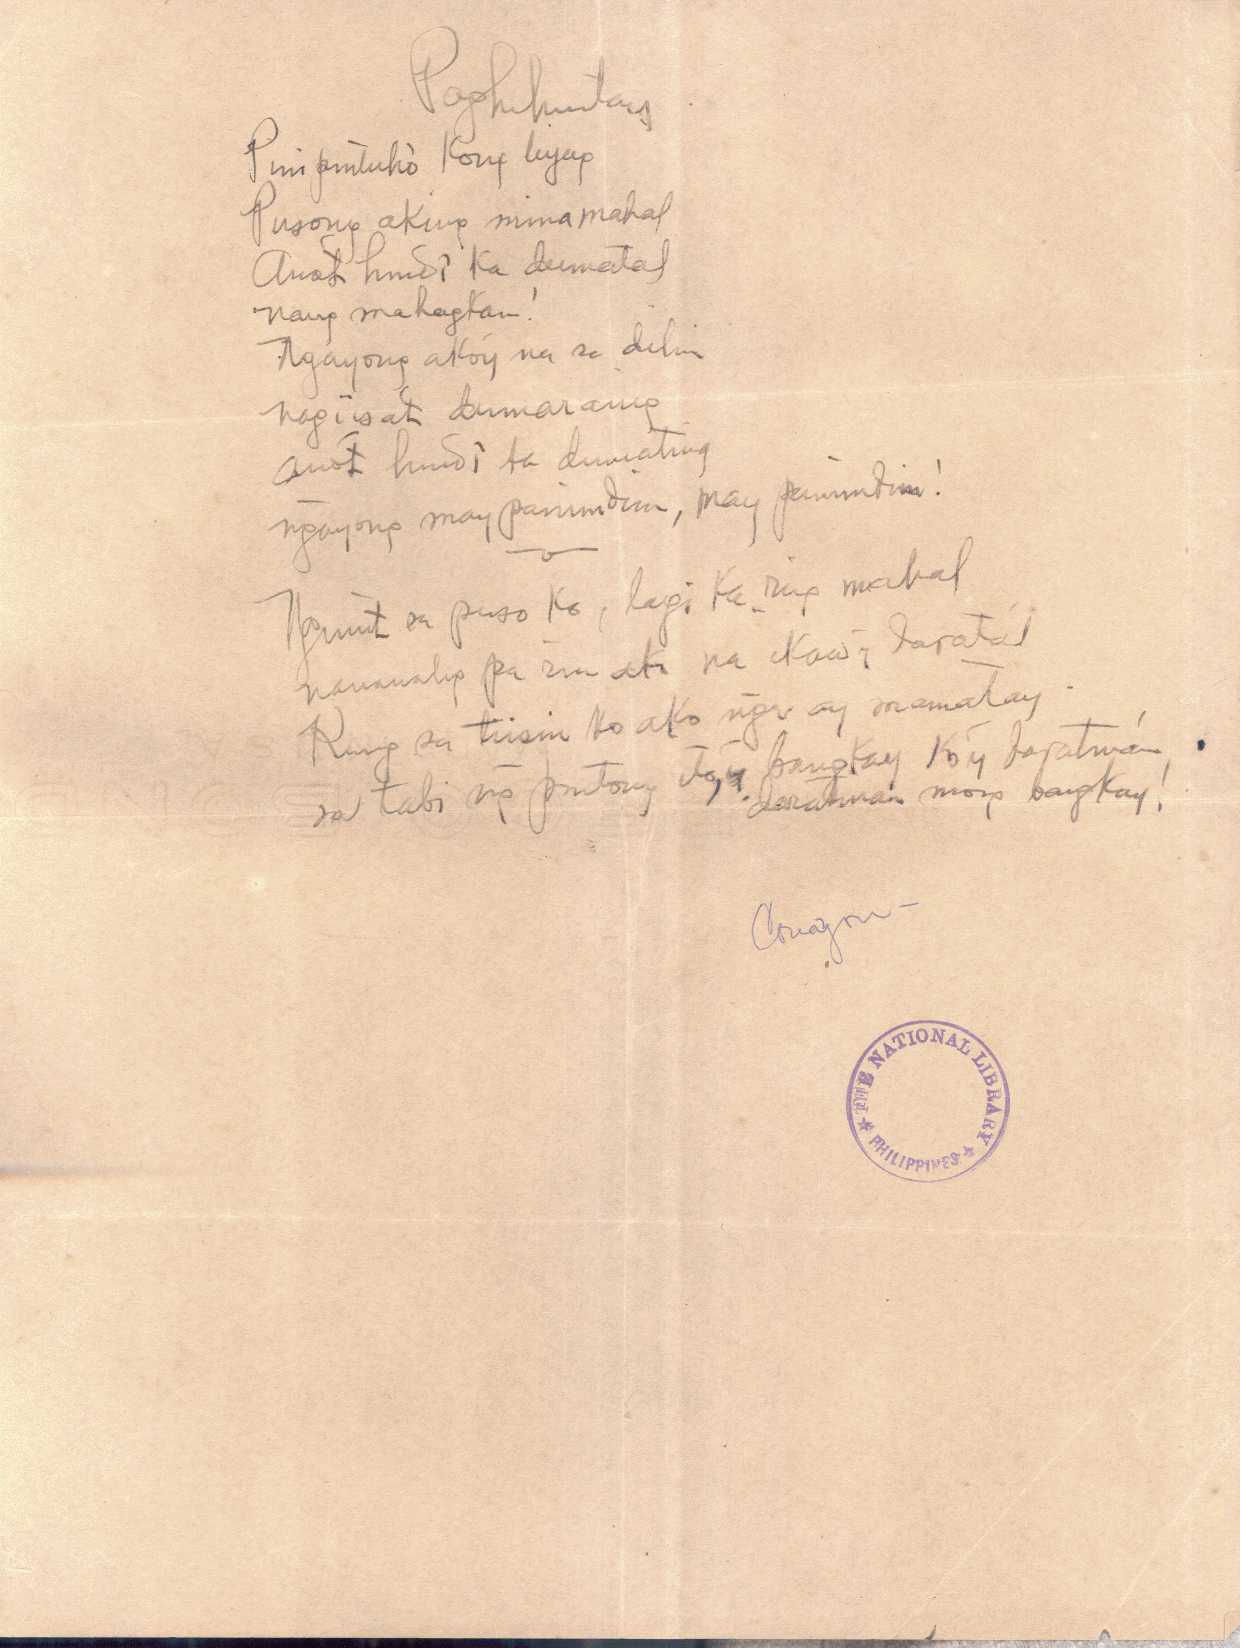 Paghihintay
Pinipintuhò Kong liyag
Pusong aking minamahal
Anót hindî Ka dumatal
nang mahagkan!
Ngayong akóy na sa dilim
nagiisát dumaraing
anót hindî ka dumating
ngayong may panimdim, may panimdim!
Ngunit sa puso Ko, lagi Ka ring mahal
nananalig pa rin ako na ikaw'y daratál
Kung sa tiisin ko ako nga ay mamatay.
sa tabi ng puntong itó'y bangkay Kó'y daratnán,
daratnan mong bangkay!
Corazon-
THE NATIONAL LIBRARY
PHILIPPINES